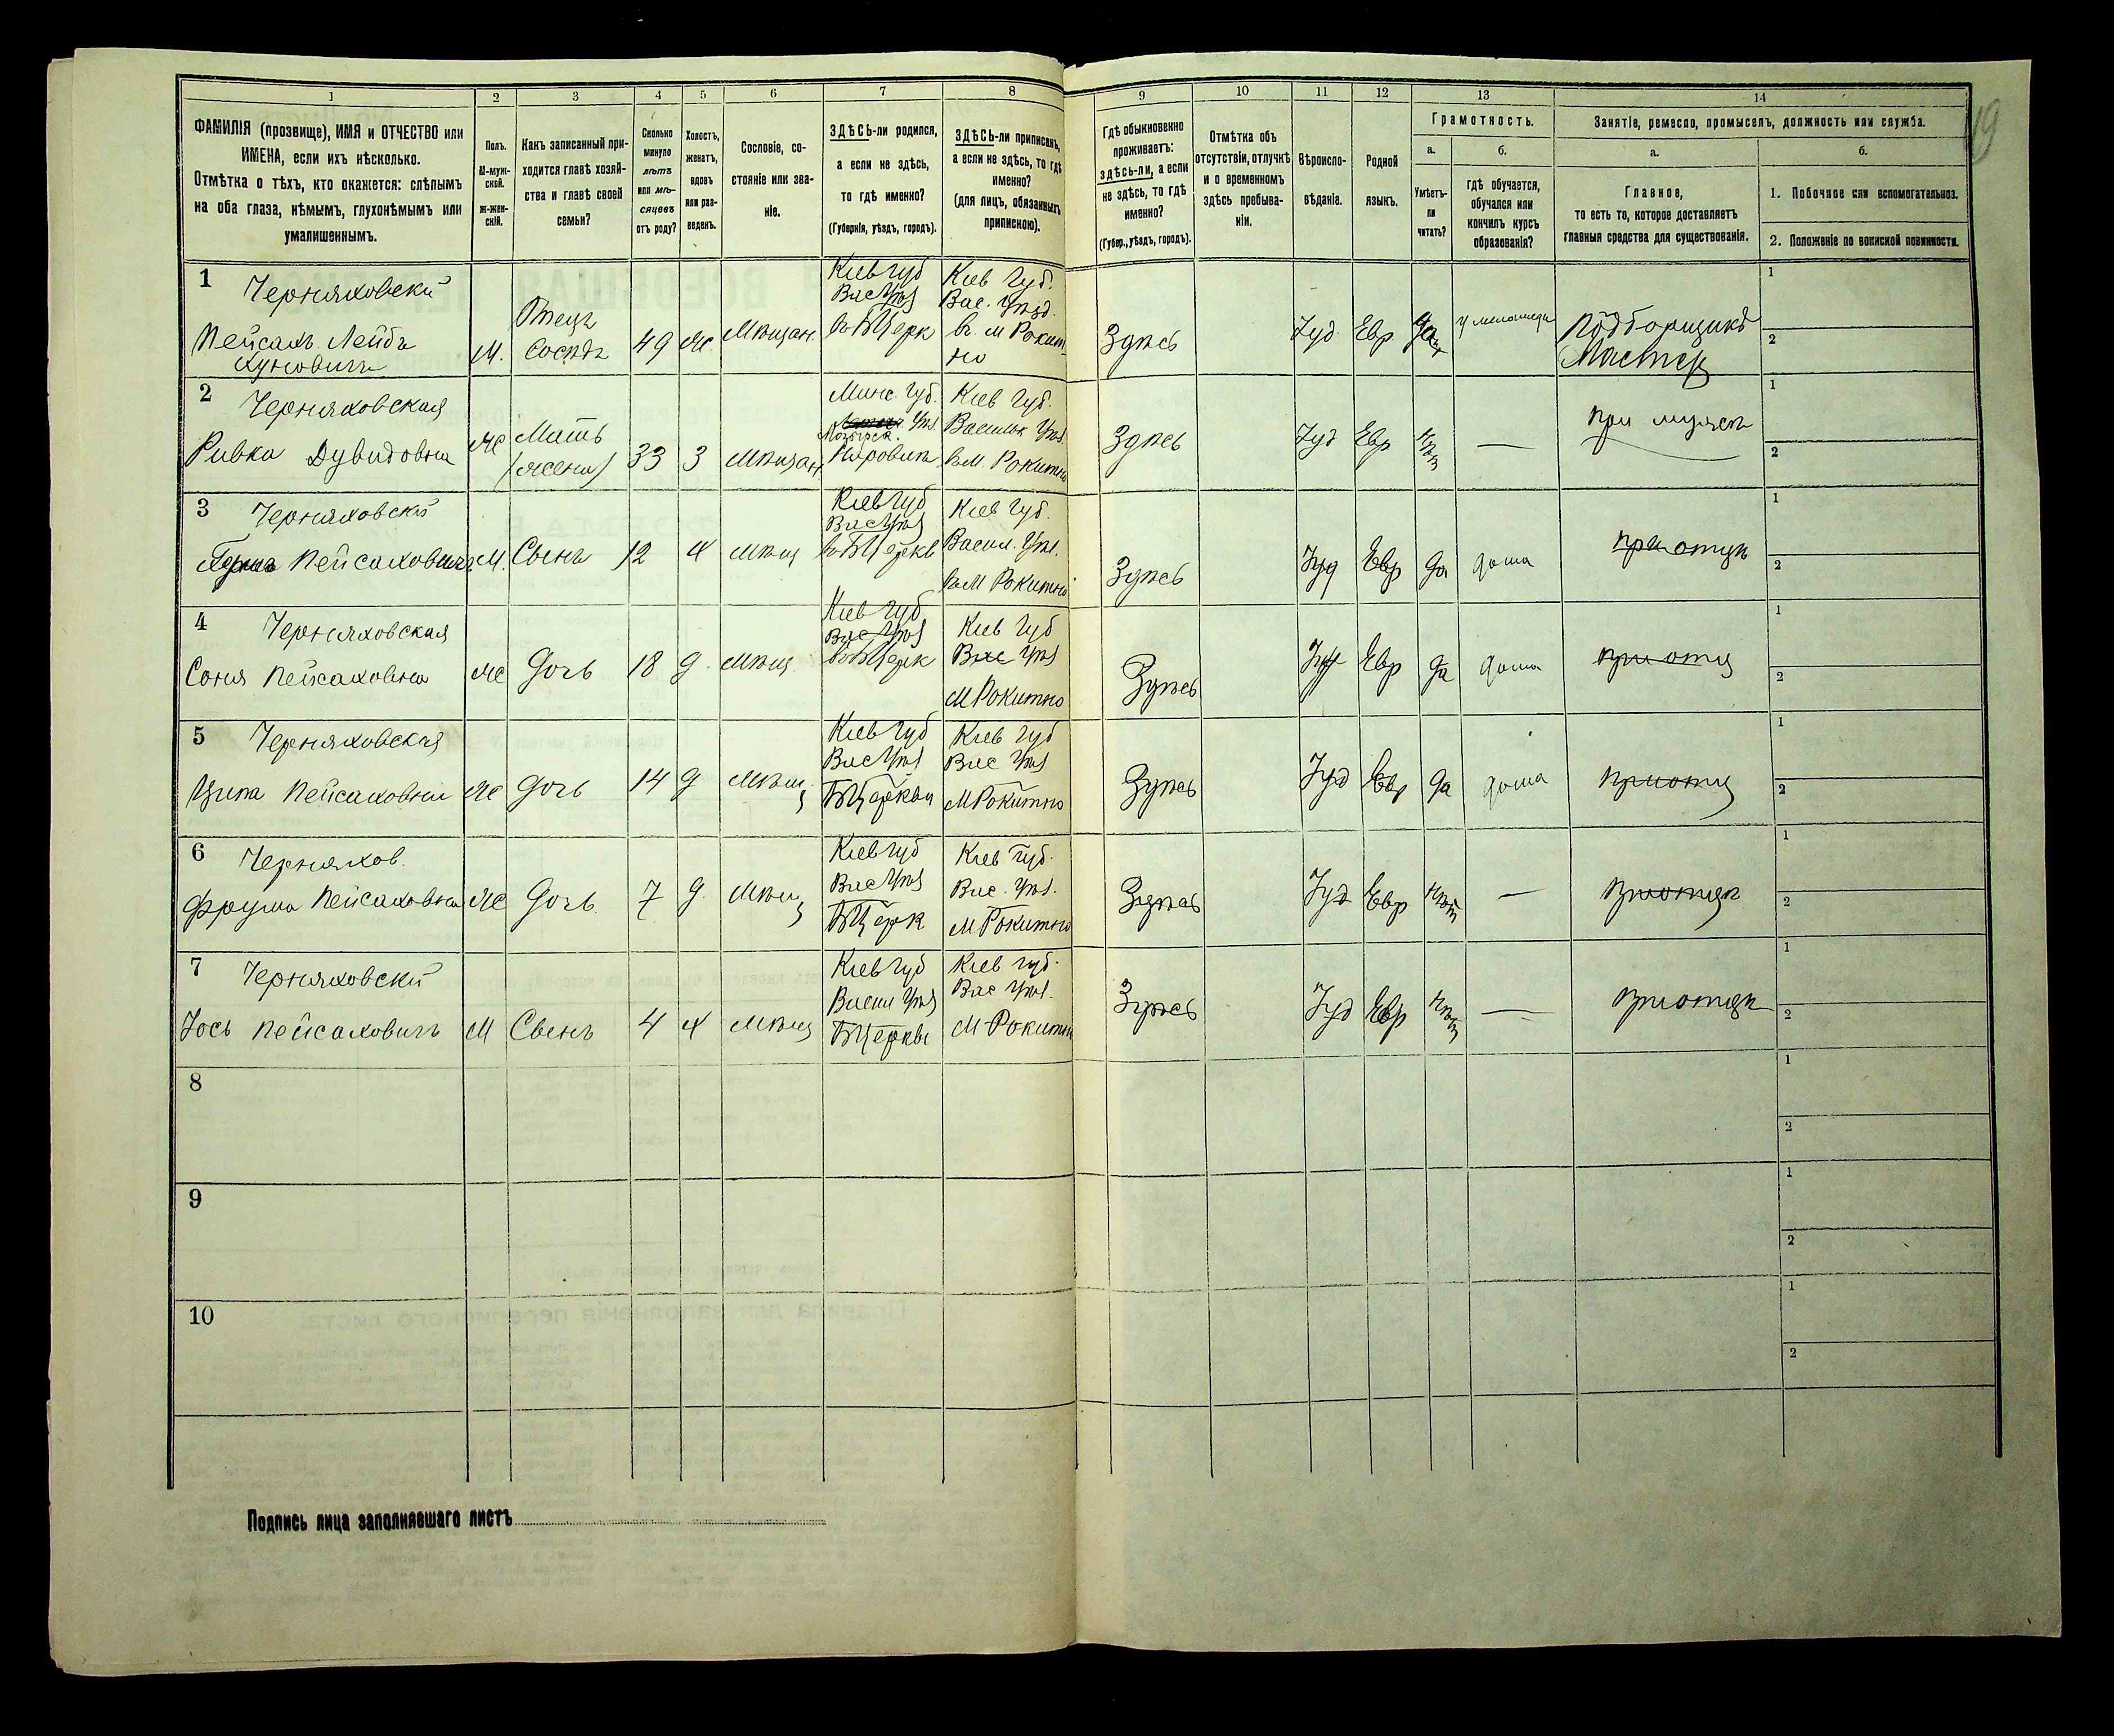 1 2 3 4 5 6 7 8 9 10 11 12 13 14
ФАМИЛІЯ (прозвище), ИМЯ и ОТЧЕСТВО или
ИМЕНА, если ихъ нѣсколько.
Отмѣтка о тѣхъ, кто окажется: слѣпымъ
на оба глаза, нѣмымъ, глухонѣмымъ или
умалишеннымъ.
Полъ.
М-муж-
ской.
ж-жен-
скій.
Какъ записанный при-
ходится главѣ хозяй-
ства и главѣ своей
семьи?
Сколько
минуло
лѣтъ
или мѣ-
сяцевъ
отъ роду?
Холостъ,
женатъ,
вдовъ
или раз-
веденъ.
Сословіе, со-
стояніе или зва-
ніе.
ЗДѢСЬ-ли родился,
а если не здѣсь,
то гдѣ именно?
(Губернія, уѣздъ, городъ).
ЗДѢСЬ-ли приписанъ,
а если не здѣсь, то гдѣ
именно?
(для лицъ, обязанныхъ
припискою).
Гдѣ обыкновенно
проживаетъ:
здѣсь-ли, а если
не здѣсь, то гдѣ
именно?
(Губер., уѣздъ, городъ).
Отмѣтка объ
отсутствіи, отлучкѣ
и о временномъ
здѣсь пребыва-
ніи.
Вѣроиспо-
вѣданіе.
Родной
языкъ.
Грамотность.
а.
Умѣетъ-
ли
читать?
б.
гдѣ обучается,
обучался или
кончилъ курсъ
образованія?
Занятіе, ремесло, промыселъ, должность или служба.
а.
Главное,
то есть то, которое доставляетъ
главныя средства для существованія.
б.
1. Побочное или вспомогательное.
2. Положеніе по воинской повинности.
19
1
Черняховскій
Пейсахъ Лейбъ
Хуновичъ
М.
Отецъ
49
Же
Мѣщан.
Кіев Губ
Вас Уѣз
въ БЦерк
Кіев Губ.
Вас. Уѣзд.
в. м Рокит-
но
Здѣсь
Іуд
Евр
да
Мастер
1
2
2
Черняховская
Ривка Дувидовна
Же
Мать
(жена)
33
З
Мѣщан
Минс. Губ.
Уѣз
Мозырск.
Кіев Губ.
Васильк Уѣз
вм. Рокитно
Здѣсь
Іуд
Евр
Нѣт
—
при мужѣ
1
2
3
Черняховскій
Пейсаховичъ
М.
Сынъ
12
Х
мѣщ
Кіев Губ
Вас Уѣз
въ БЦеркв
Кіев Губ.
Васил. Уѣз.
вм Рокитно
Здѣсь
Іуд
Евр
да
дома
при отцѣ
1
2
4
Черняховская
Соня Пейсаховна
Же
Дочь
18
д.
мѣщ.
Кіев Губ
Вас Уѣз
въ БЦерк
Кіев Губ
Вас Уѣз
м Рокитно
Здѣсь
Іуд
Евр
да
дома
при отц
1
2
5
Черняховская
Ципа Пейсаховна
Же
дочь
14
д
Мѣщ
Кіев Губ
Вас Уѣз
БЦеркви
Кіев Губ
Вас Уѣз
м Рокитно
Здѣсь
Іуд
Евр
да
дома
при отц
1
2
6
Черняхов.
Фрума Пейсаховна
Же
Дочь
7
д.
Мѣщ
Кіев Губ
Вас Уѣз
БЦерк
Кіев Губ.
Вас. Уѣз.
м Рокитно
Здѣсь
Іуд
Евр
Нѣт
—
при отцѣ
1
2
7
Черняховскій
Іось Пейсаховичъ
М
Сынъ
4
Х
Мѣщ
Кіев Губ
Васил Уѣз
БЦеркви
Кіев Губ.
Вас Уѣз.
м Рокитно
Здѣсь
Іуд
Евр
Нѣт
—
при отцѣ
1
2
8
1
2
9
1
2
10
1
2
Подпись лица заполнявшаго листъ